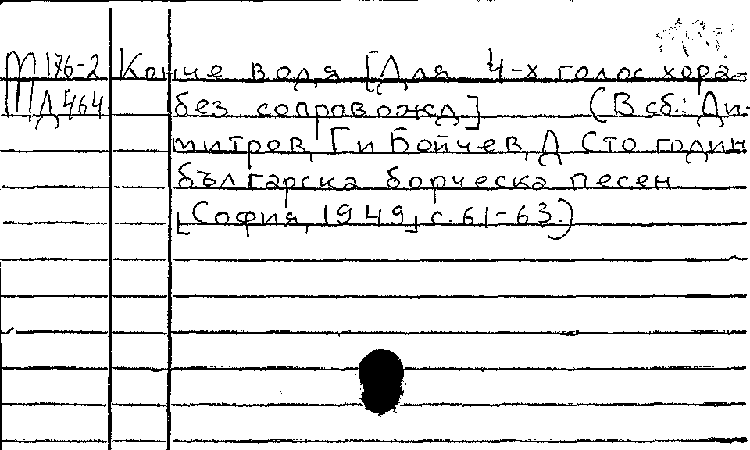 М 176-2 Конче вода [Для 4-х голос хора
Д 464 без сопровожд.] (В сб.: Ди-
митров, Г и Бойчев, Д Сто годин
българска борческа песен
[София, 1949] с. 61-63.)